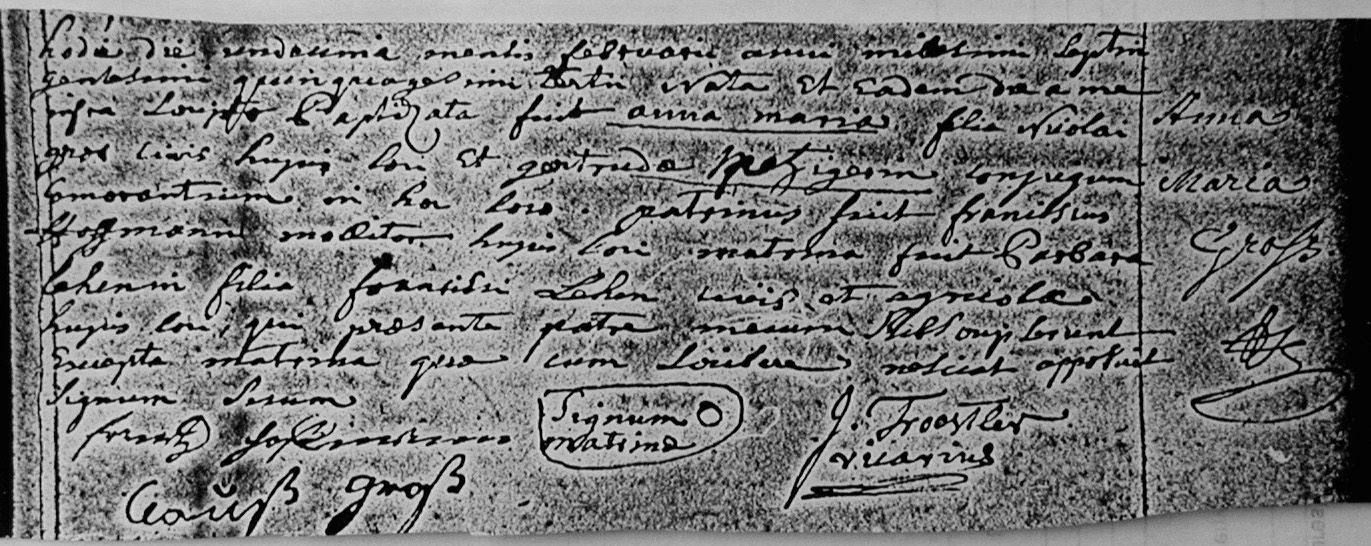 hodie die undecima mensis februarii anni millesimi septin
gentesimi quinquagesimi tertii Nata Et Eadem die a me
infra Scripto Baptizata fuit anna maria filia Nicolai
gros civis hujus loci Et gertrudæ conjugum
Comorantium in hoc loco. patrinus fuit franciscus
Hoffmann molitor hujus loci matrina fuit Barbara
Lehenin filia francisci Lehen civis et agricolæ
hujus loci, qui præsente patre mecum Subscripserunt
Excepta matrina quæ cum scribere nesciat apposuit
Signum Suum
Anna
Maria
Groß
frantz
Signum O
matrinæ
J. Troestler
vicarius
Clauß groß